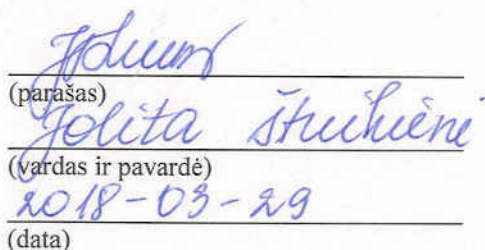 (parašas)
Jolita
(vardas ir pavardė)
2018-03-29
(data)